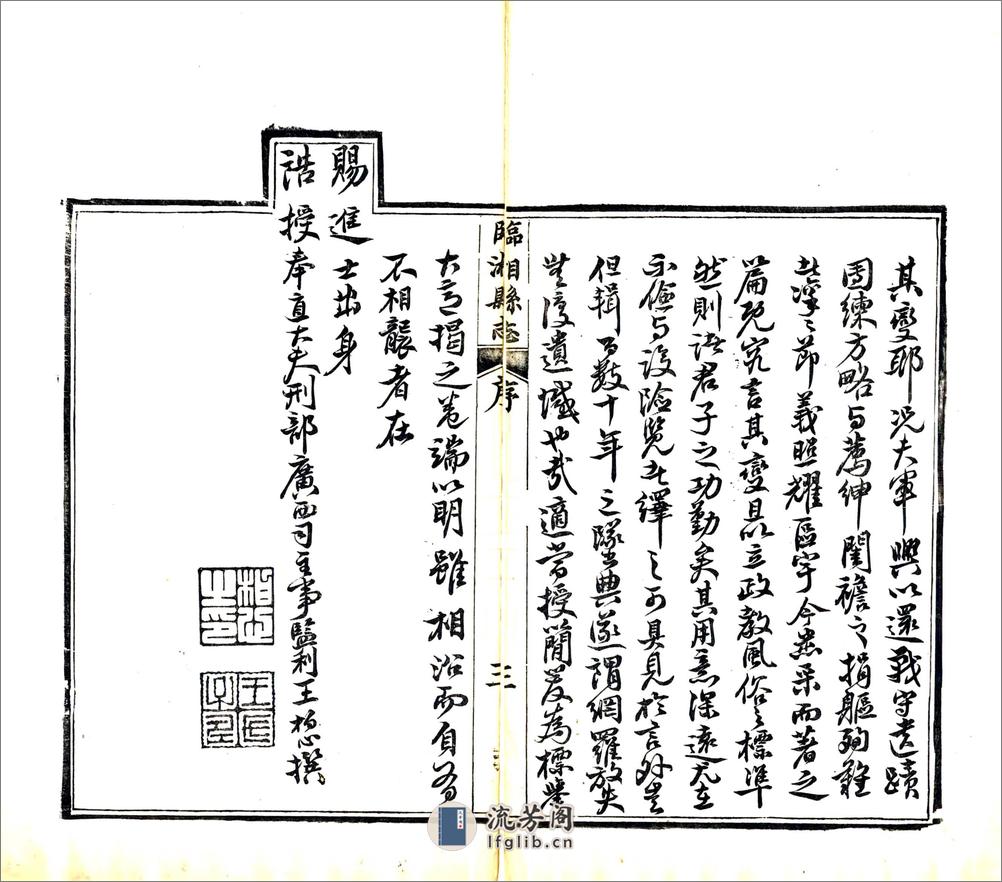 其變耶況夫軍興以還戰守遺蹟
團練方略与薦紳閨襜之捐軀殉難
此犖〻節義照耀區宇今悉采而著之
篇既究言其變且以立政教風俗之標準
然則諸君子之功勤矣其用意深遠尤在
示儉与設險覽者繹之可具見於言外豈
但輯百數十年之墜典遂謂網羅放失
無復遺憾也哉適當授簡爰為標舉
臨湘縣志 序 三
大言揭之卷端以明雖相沿而自有
不相襲者在
賜進士出身
誥授奉直大夫刑部廣西司主事監利王柏心撰
柏心之印
王氏子壽
流芳阁
lfglib.cn